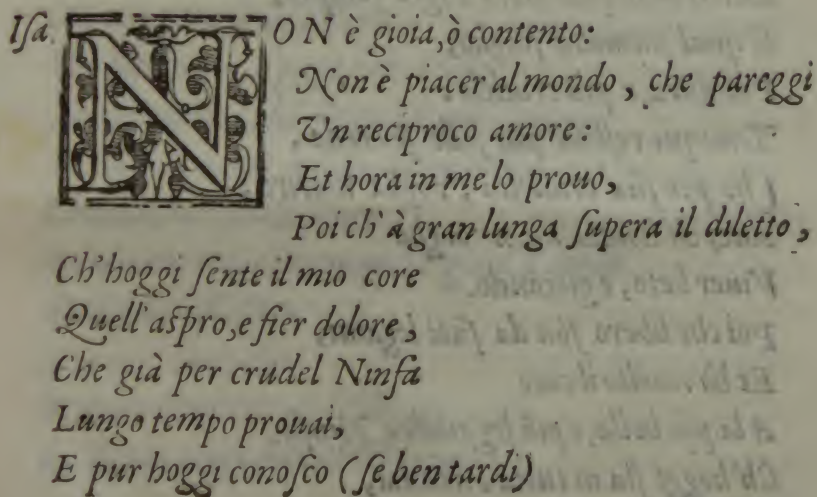 Isa. NON è gioia, ò contento:
Non è piacer al mondo, che pareggi
Vn reciproco amore:
Et hora in me lo prouo,
Poi ch'à gran lunga supera il diletto,
Ch'hoggi sente il mio core
Quell'aspro, e fier dolore,
Che già per crudel Ninfa
Lungo tempo prouai,
E pur hoggi conosco (se ben tardi)